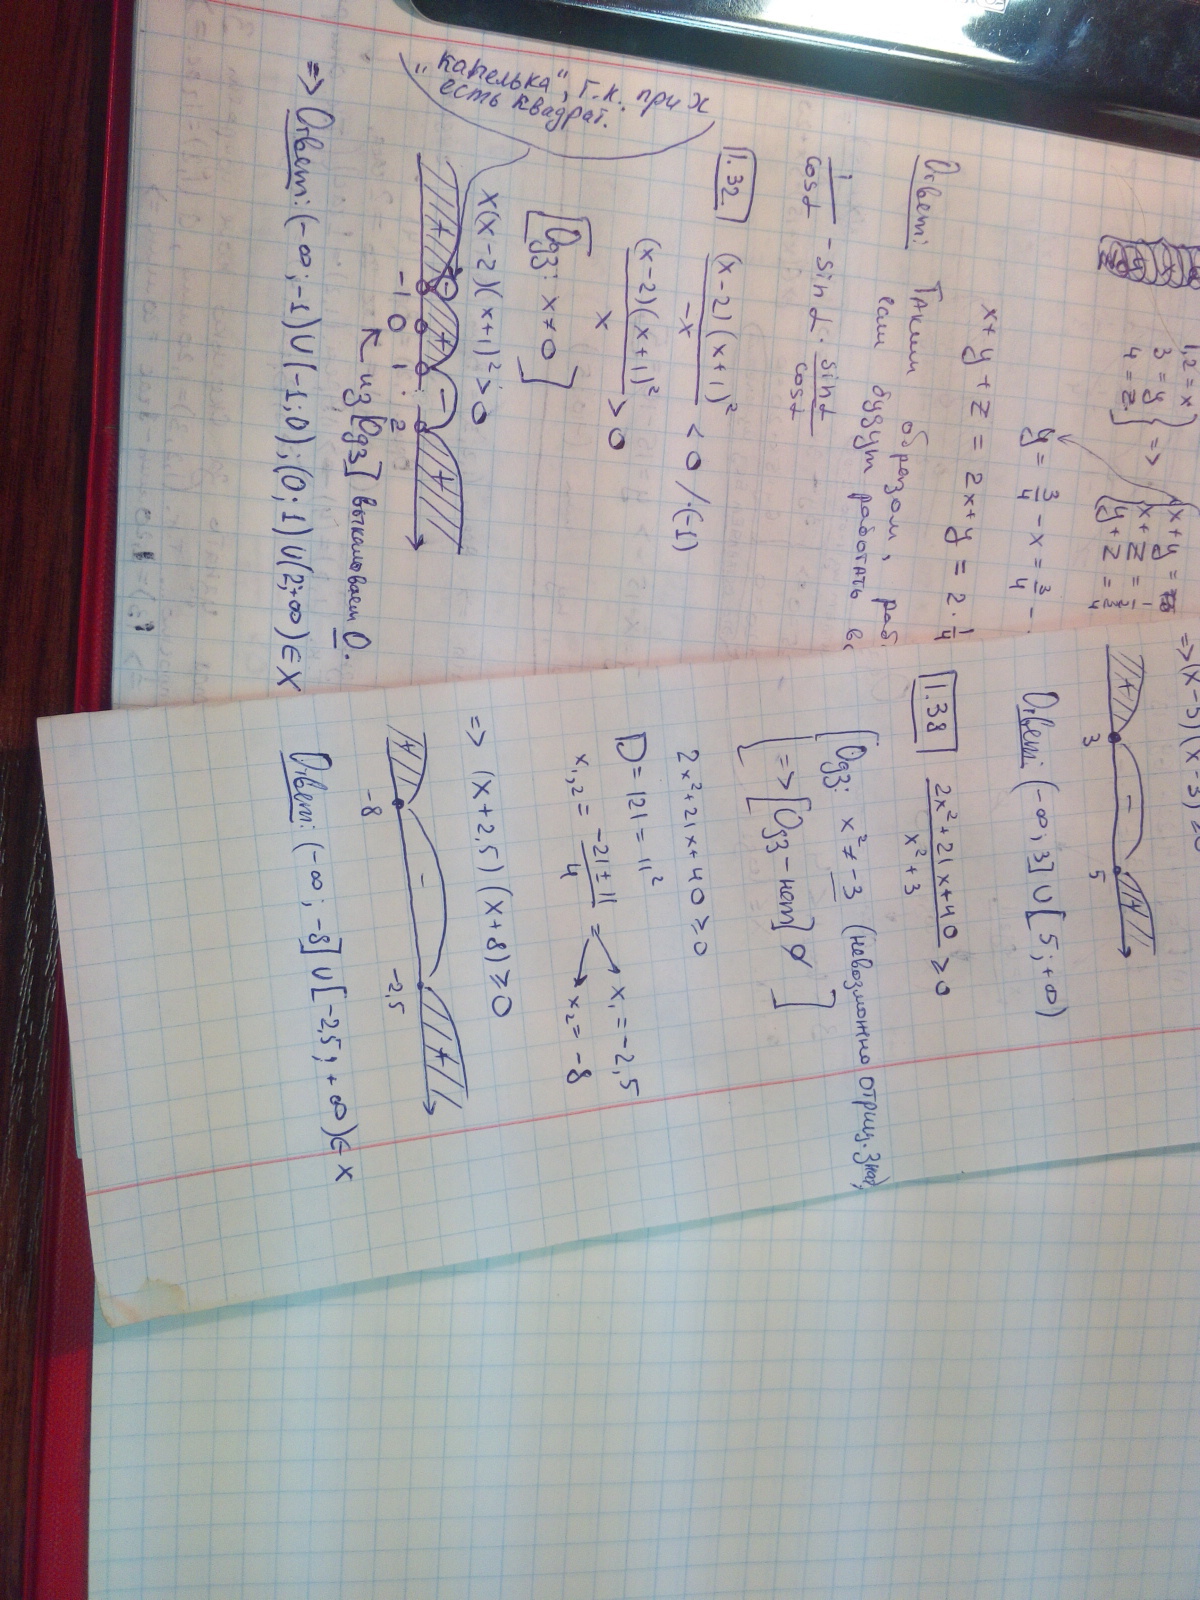 1,2 = x
3 = y
4 = z
=>
x + y =
x + z = 1/2
y + z = 3/4
y = 3/4 - x = 3/4 -
x + y + z = 2x + y = 2 · 1/4
Ответ: Таким образом,
если будут работать
1/cosα - sinα · sinα/cosα
1.32. (x-2)(x+1)²/-x < 0 /·(-1)
(x-2)(x+1)²/x > 0
[Одз: x ≠ 0]
x(x-2)(x+1)² > 0
"капелька", т.к. при x
есть квадрат.
+ - + - +
-1 0 1 2
↖ из [Одз] выкалываем 0.
=> Ответ: (-∞; -1) ∪ (-1; 0); (0; 1) ∪ (2; +∞) ∈ X
=> (x-5)(x-3) ≥ 0
+ - +
3 5
Ответ: (-∞; 3] ∪ [5; +∞)
1.38 2x² + 21x + 40/x² + 3 ≥ 0
[Одз: x² ≠ -3 (невозможно отриц. знач.)
=> [Одз - нет] ∅]
2x² + 21x + 40 ≥ 0
D = 121 = 11²
x₁,₂ = -21 ± 11/4 = x₁ = -2,5
x₂ = -8
=> (x + 2,5)(x + 8) ≥ 0
+ - +
-8 -2,5
Ответ: (-∞; -8] ∪ [-2,5; +∞) ∈ X